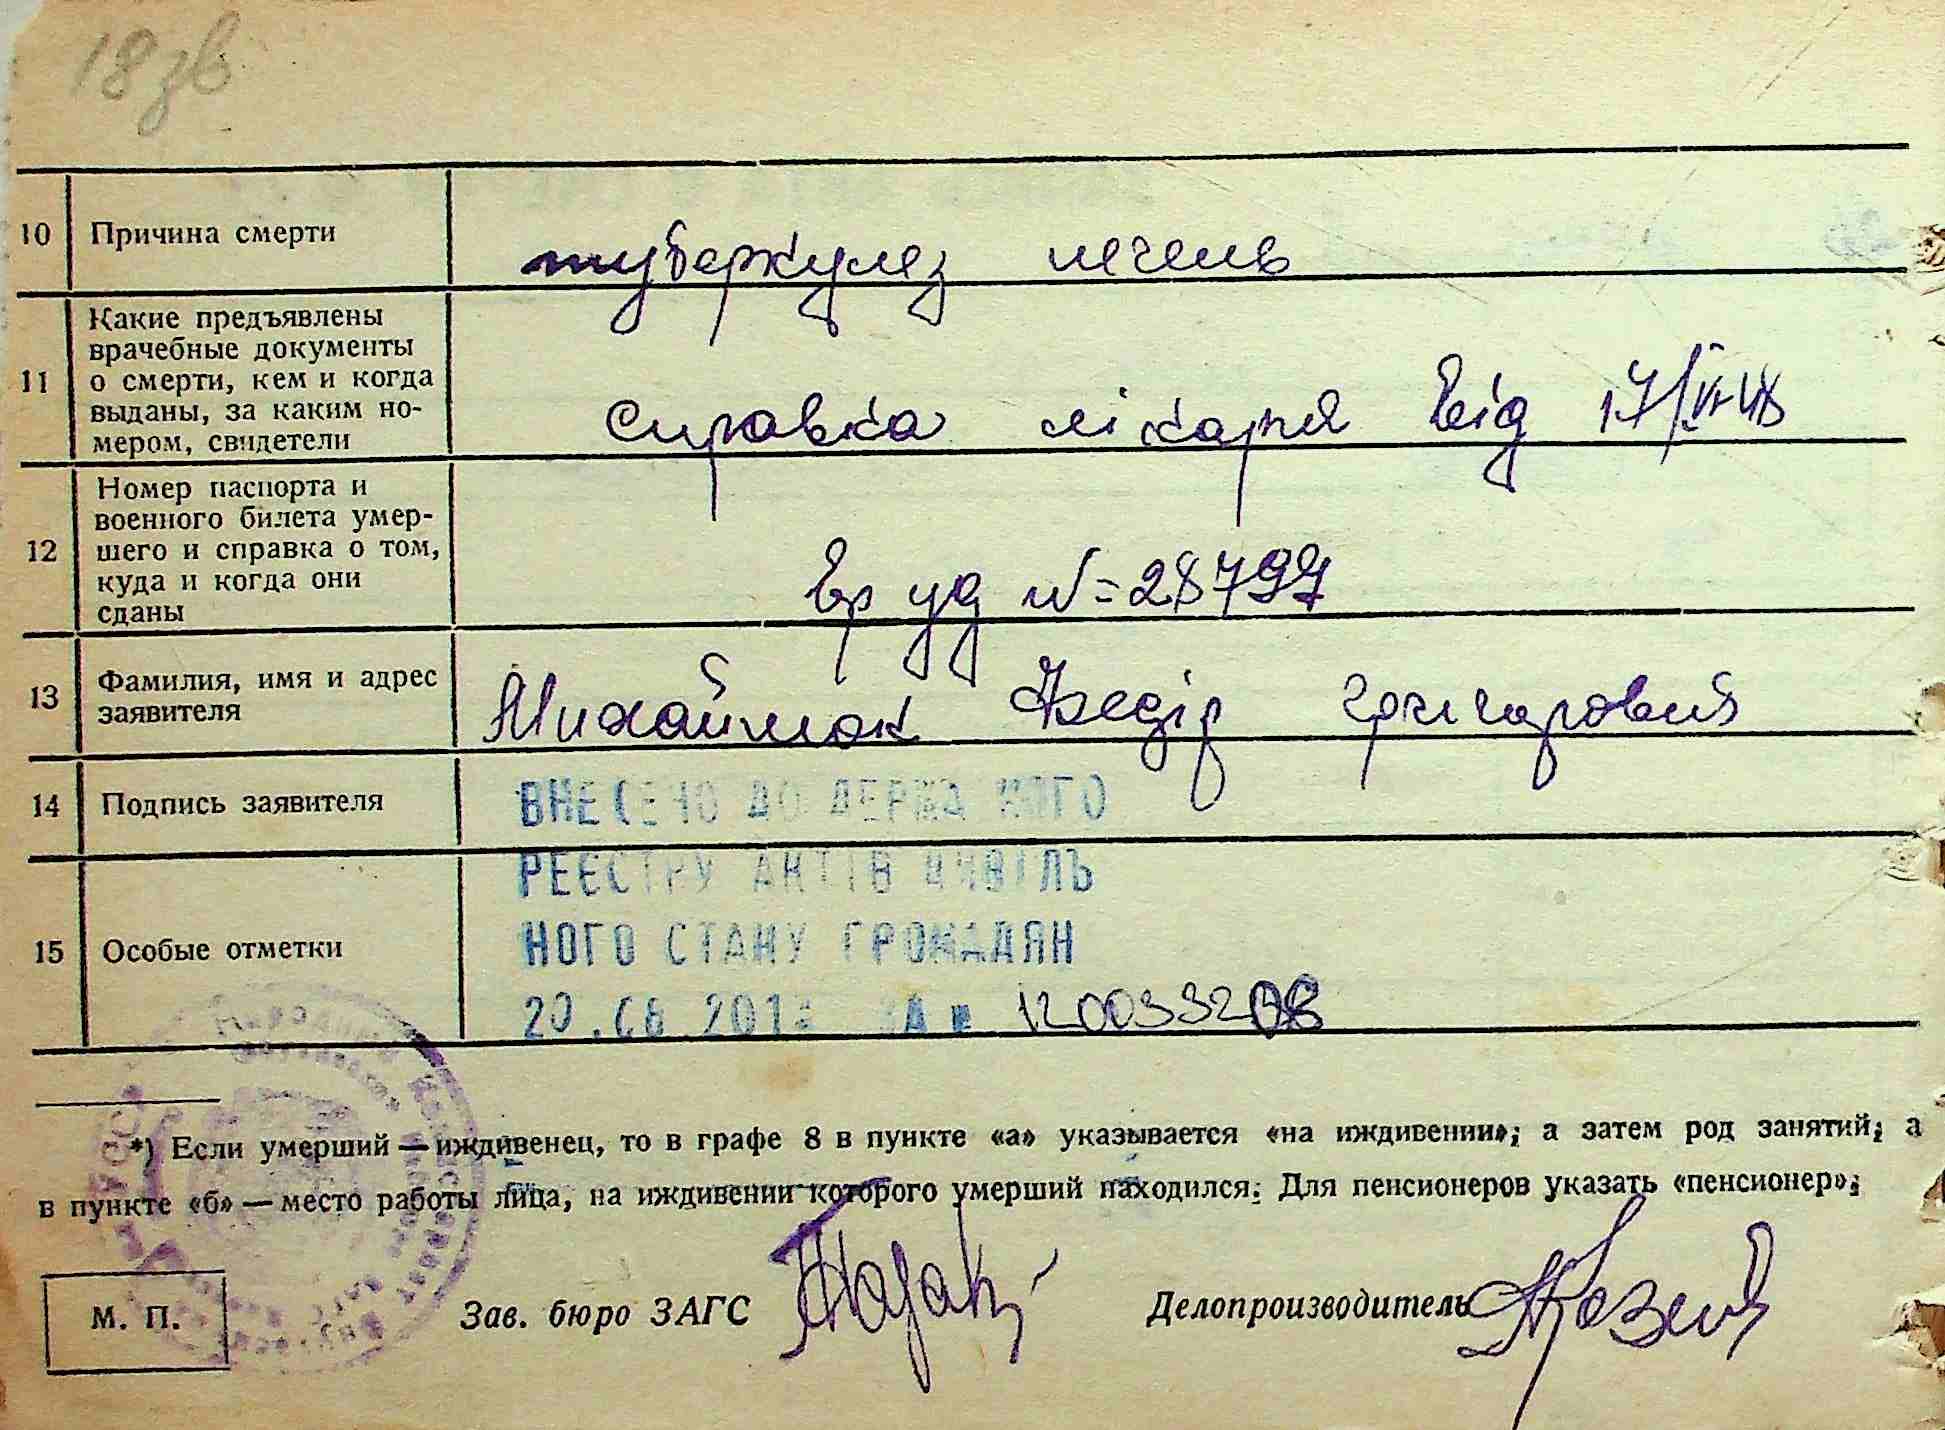 18зв
10 Причина смерти туберкулез печень
11 Какие предъявлены
врачебные документы
о смерти, кем и когда
выданы, за каким но-
мером, свидетели
Справка лікаря від 17/VI-48
12 Номер паспорта и
военного билета умер-
шего и справка о том,
куда и когда они
сданы
Вр уд №=28797
13 Фамилия, имя и адрес
заявителя
Михайлюк Федір Григорович
14 Подпись заявителя
ВНЕСЕНО ДО ДЕРЖАВНОГО
РЕЄСТРУ АКТІВ ЦИВІЛЬ
НОГО СТАНУ ГРОМАДЯН
15 Особые отметки
20.08.201 ЗА № 1200332
*) Если умерший — иждивенец, то в графе 8 в пункте «а» указывается «на иждивении»; а затем род занятий; а
в пункте «б» — место работы лица, на иждивении которого умерший находился. Для пенсионеров указать «пенсионер»;
М. П. Зав. бюро ЗАГС Делопроизводитель